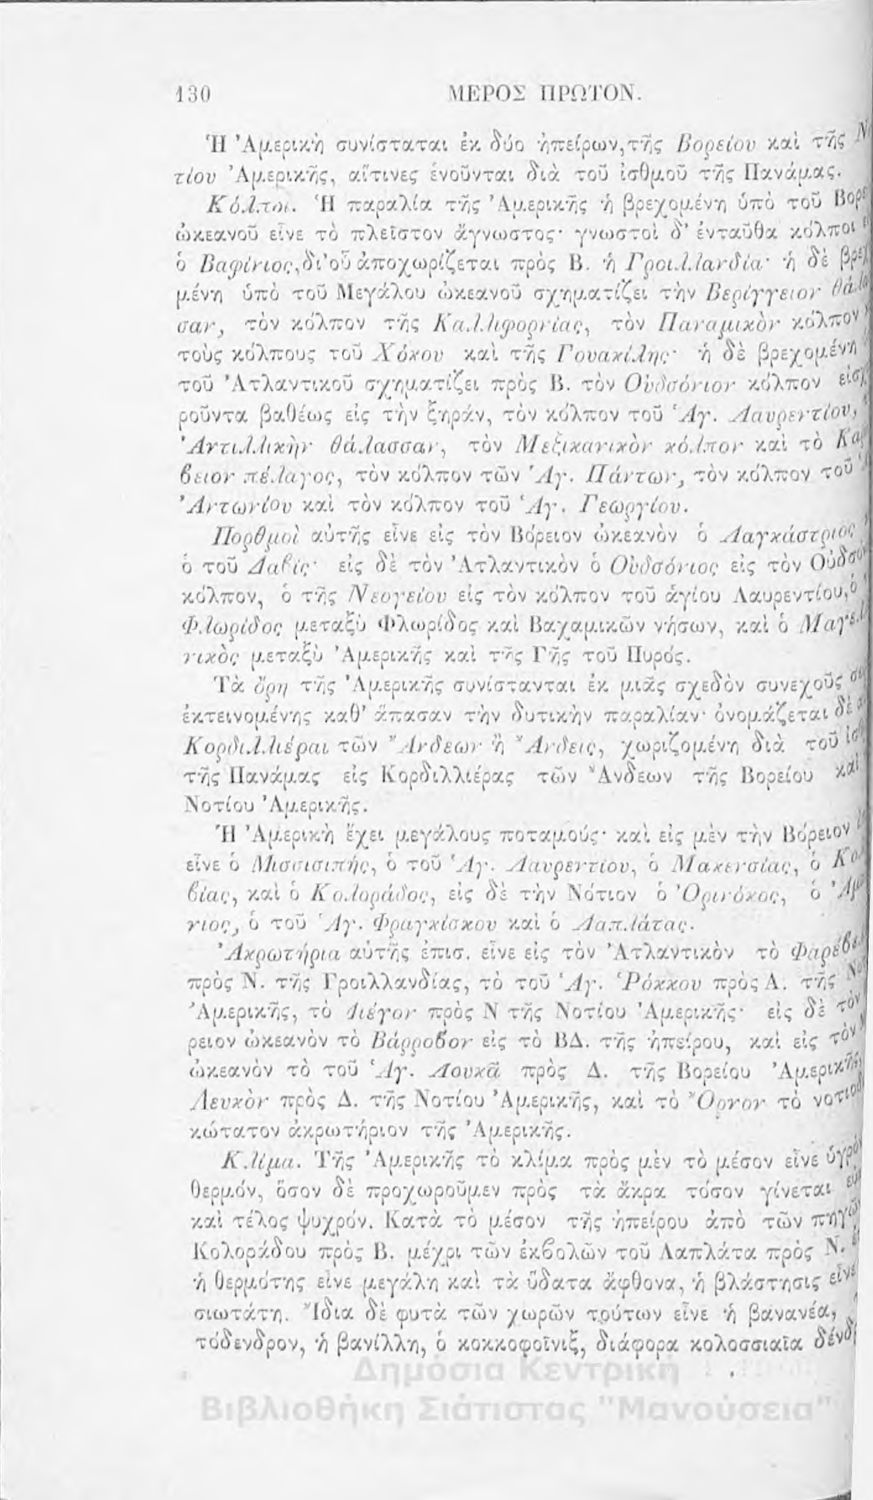 130 ΜΕΡΟΣ ΠΡΩΤΟΝ.
Ἡ Ἀμερικὴ συνίσταται ἐκ δύο ἠπείρων, τῆς Βορείου καὶ τῆς Νο
τίου Ἀμερικῆς, αἵτινες ἑνοῦνται διὰ τοῦ ἰσθμοῦ τῆς Πανάμας.
Κόλποι. Ἡ παραλία τῆς Ἀμερικῆς ἡ βρεχομένη ὑπὸ τοῦ Βορε
ὠκεανοῦ εἶνε τὸ πλεῖστον ἄγνωστος· γνωστοὶ δ’ ἐνταῦθα κόλποι
ὁ Βαφίνιος, δι’ οὗ ἀποχωρίζεται πρὸς Β. ἡ Γροιλλανδία· ἡ δὲ βρε
μένη ὑπὸ τοῦ Μεγάλου ὠκεανοῦ σχηματίζει τὴν Βερίγγειον θάλα
σαν, τὸν κόλπον τῆς Καλλιφορνίας, τὸν Παναμικὸν κόλπον
τοὺς κόλπους τοῦ Χόκου καὶ τῆς Γουακίλης· ἡ δὲ βρεχομένη
τοῦ Ἀτλαντικοῦ σχηματίζει πρὸς Β. τὸν Οὐδσόνιον κόλπον εἰσχ
ροῦντα βαθέως εἰς τὴν ξηράν, τὸν κόλπον τοῦ Ἁγ. Λαυρεντίου,
Ἀντιλλικὴν θάλασσαν, τὸν Μεξικανικὸν κόλπον καὶ τὸ Κα
βειον πέλαγος, τὸν κόλπον τῶν Ἁγ. Πάντων, τὸν κόλπον τοῦ
Ἀντωνίου καὶ τὸν κόλπον τοῦ Ἁγ. Γεωργίου.
Πορθμοὶ αὐτῆς εἶνε εἰς τὸν Βόρειον ὠκεανὸν ὁ Λαγκάστριος
ὁ τοῦ Δαβίς· εἰς δὲ τὸν Ἀτλαντικὸν ὁ Οὐδσόνιος εἰς τὸν Οὐδσό
κόλπον, ὁ τῆς Νεογείου εἰς τὸν κόλπον τοῦ ἁγίου Λαυρεντίου, ὁ
Φλωρίδος μεταξὺ Φλωρίδος καὶ Βαχαμικῶν νήσων, καὶ ὁ Μαγελ
νικὸς μεταξὺ Ἀμερικῆς καὶ τῆς Γῆς τοῦ Πυρός.
Τὰ ὄρη τῆς Ἀμερικῆς συνίστανται ἐκ μιᾶς σχεδὸν συνεχοῦς
ἐκτεινομένης καθ’ ἅπασαν τὴν δυτικὴν παραλίαν· ὀνομάζεται δὲ
Κορδιλλιέραι τῶν Ἄνδεων ἢ Ἄνδεις, χωριζομένη διὰ τοῦ ἰσ
τῆς Πανάμας εἰς Κορδιλλιέρας τῶν Ἄνδεων τῆς Βορείου καὶ
Νοτίου Ἀμερικῆς.
Ἡ Ἀμερικὴ ἔχει μεγάλους ποταμούς· καὶ εἰς μὲν τὴν Βόρειον
εἶνε ὁ Μισσισιπής, ὁ τοῦ Ἁγ. Λαυρεντίου, ὁ Μακενσίας, ὁ Κο
βίας, καὶ ὁ Κολοράδος, εἰς δὲ τὴν Νότιον ὁ Ὀρινόκος, ὁ
νιος, ὁ τοῦ Ἁγ. Φραγκίσκου καὶ ὁ Λαπλάτας.
Ἀκρωτήρια αὐτῆς ἐπισ. εἶνε εἰς τὸν Ἀτλαντικὸν τὸ Φαρβέλ
πρὸς Ν. τῆς Γροιλλανδίας, τὸ τοῦ Ἁγ. Ῥόκκου πρὸς Α. τῆς Νο
Ἀμερικῆς, τὸ Διέγον πρὸς Ν τῆς Νοτίου Ἀμερικῆς· εἰς δὲ τὸν
ρειον ὠκεανὸν τὸ Βάρροβον εἰς τὸ ΒΔ. τῆς ἠπείρου, καὶ εἰς τὸν
ὠκεανὸν τὸ τοῦ Ἁγ. Λουκᾶ πρὸς Δ. τῆς Βορείου Ἀμερικῆς,
Λευκὸν πρὸς Δ. τῆς Νοτίου Ἀμερικῆς, καὶ τὸ Ὄρνον τὸ νοτιο
κώτατον ἀκρωτήριον τῆς Ἀμερικῆς.
Κλίμα. Τῆς Ἀμερικῆς τὸ κλίμα πρὸς μὲν τὸ μέσον εἶνε ὑγρὸ
θερμόν, ὅσον δὲ προχωροῦμεν πρὸς τὰ ἄκρα τόσον γίνεται
καὶ τέλος ψυχρόν. Κατὰ τὸ μέσον τῆς ἠπείρου ἀπὸ τῶν πηγῶν
Κολοράδου πρὸς Β. μέχρι τῶν ἐκβολῶν τοῦ Λαπλάτα πρὸς Ν.
ἡ θερμότης εἶνε μεγάλη καὶ τὰ ὕδατα ἄφθονα, ἡ βλάστησις εἶνε
σιωτάτη. Ἴδια δὲ φυτὰ τῶν χωρῶν τούτων εἶνε ἡ βανανέα,
τόδενδρον, ἡ βανίλλη, ὁ κοκκοφοῖνιξ, διάφορα κολοσσιαῖα δένδ
Δημόσια Κεντρική
Βιβλιοθήκη Σιάτιστας "Μανούσεια"